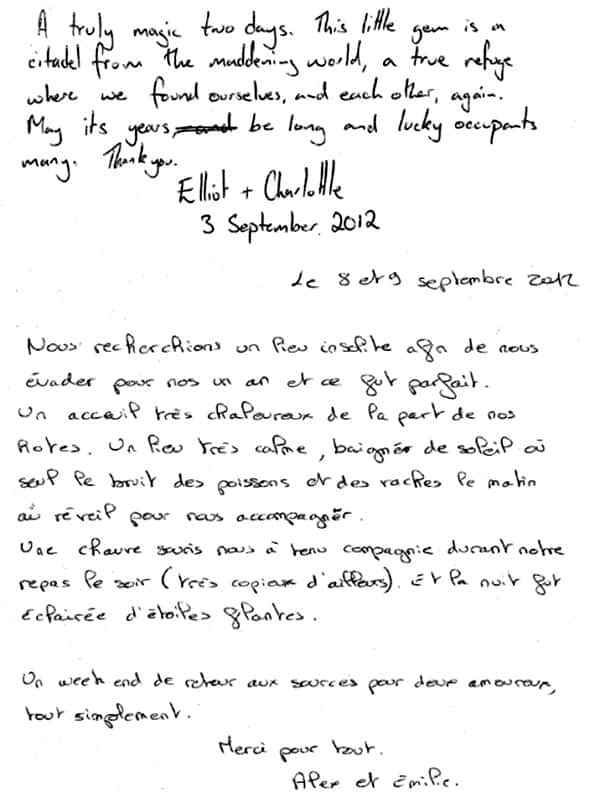 A truly magic two days. This little gem is a
citadel from the maddening world, a true refuge
where we found ourselves, and each other, again.
May its years, be long and lucky occupants
many. Thank you.
Elliot + Charlotte
3 September, 2012
Le 8 et 9 septembre 2012
Nous recherchions un lieu insolite afin de nous
évader pour nos un an et ce fut parfait.
Un acceuil très chaleureux de la part de nos
hotes. Un lieu très calme, baigné de soleil où
seul le bruit des poissons et des vaches le matin
au réveil pour nous accompagnér.
Une chauve souris nous à tenu compagnie durant notre
repas le soir (très copieux d'ailleurs). Et la nuit fut
éclairée d'étoiles filantes.
Un week end de retour aux sources pour deux amoureux,
tout simplement.
Merci pour tout.
Alex et Émilie.